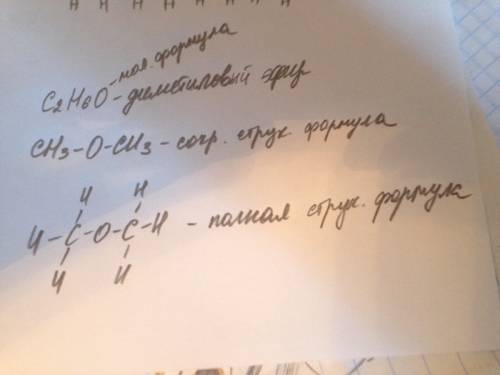 H H H H H H H
C2H6O - мол. формула
- диметиловый эфир
CH3-O-CH3 - сокр. струк. формула
H H
H-C-O-C-H - полная струк. формула
H H